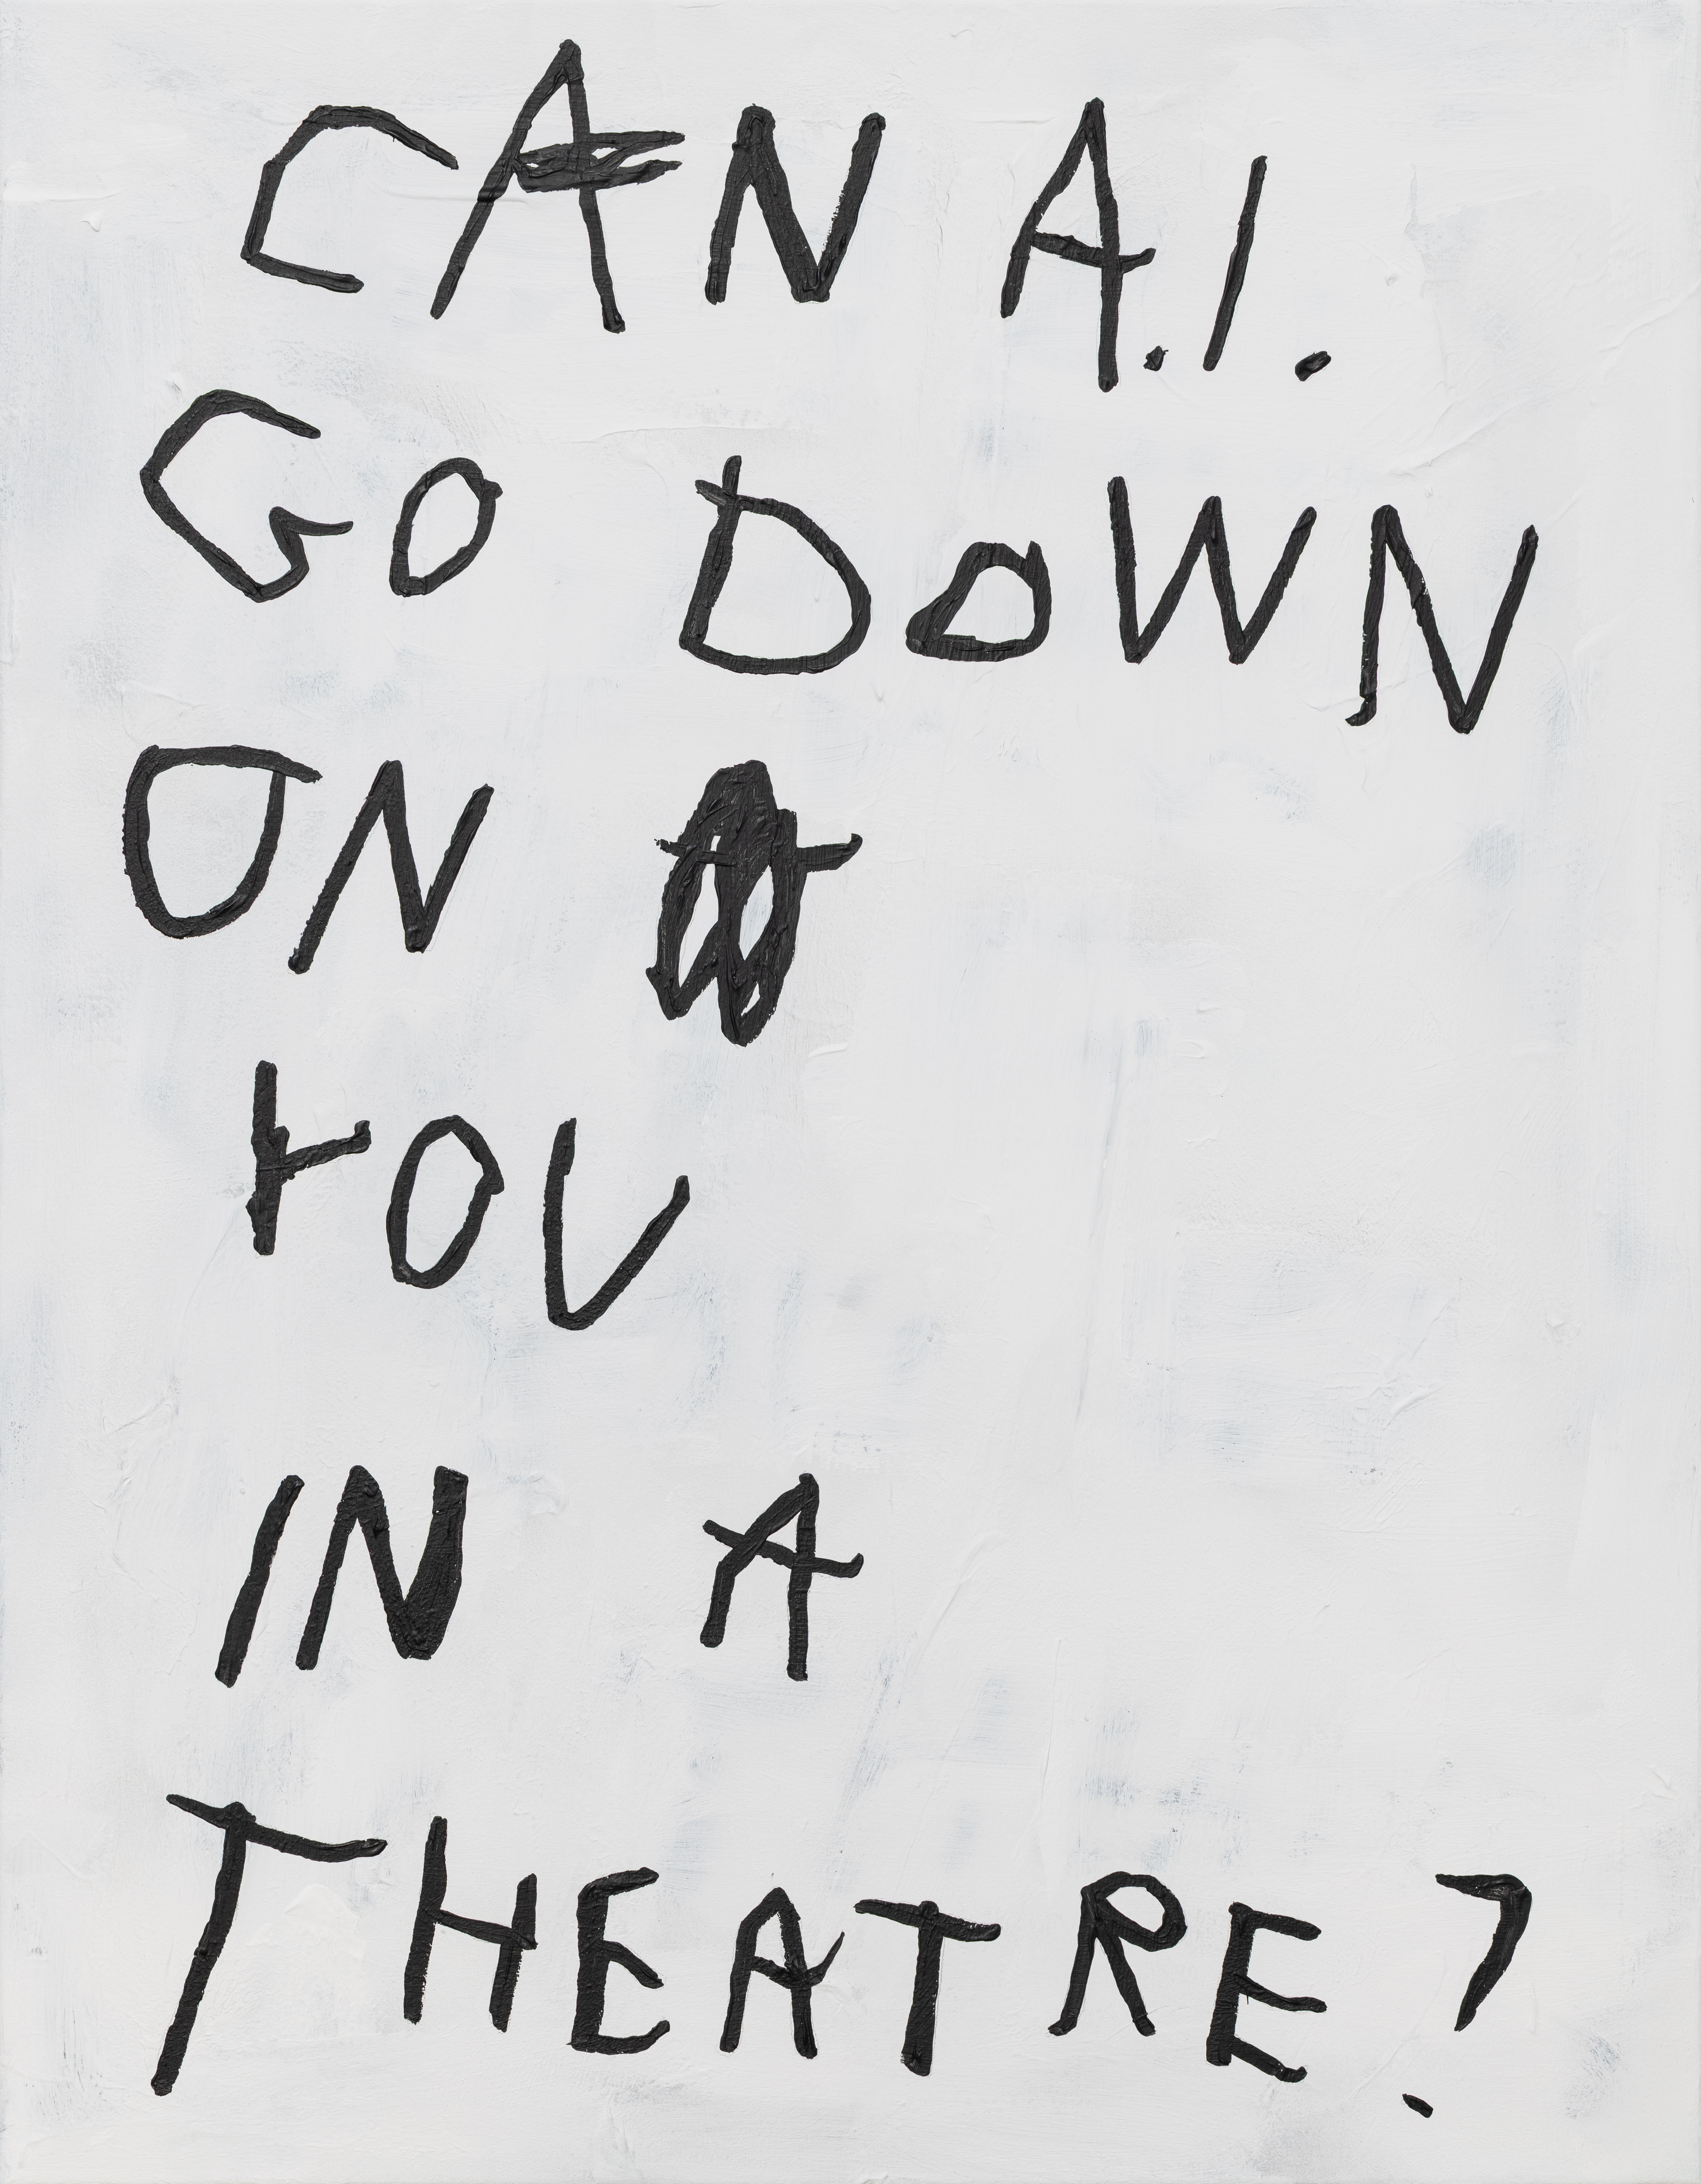 CAN A.I.
GO DOWN
ON
YOU
IN A
THEATRE?